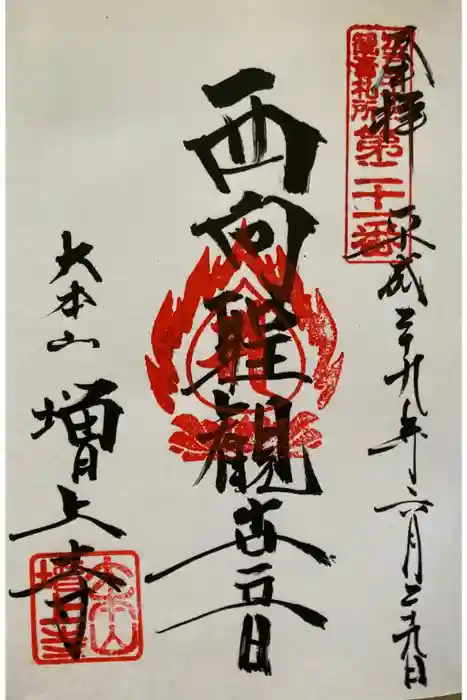 奉拝
平成二十九年六月二十九日
江戸三十三観音札所第二十一番
西向聖観世音
大本山
増上寺
大本山増上寺